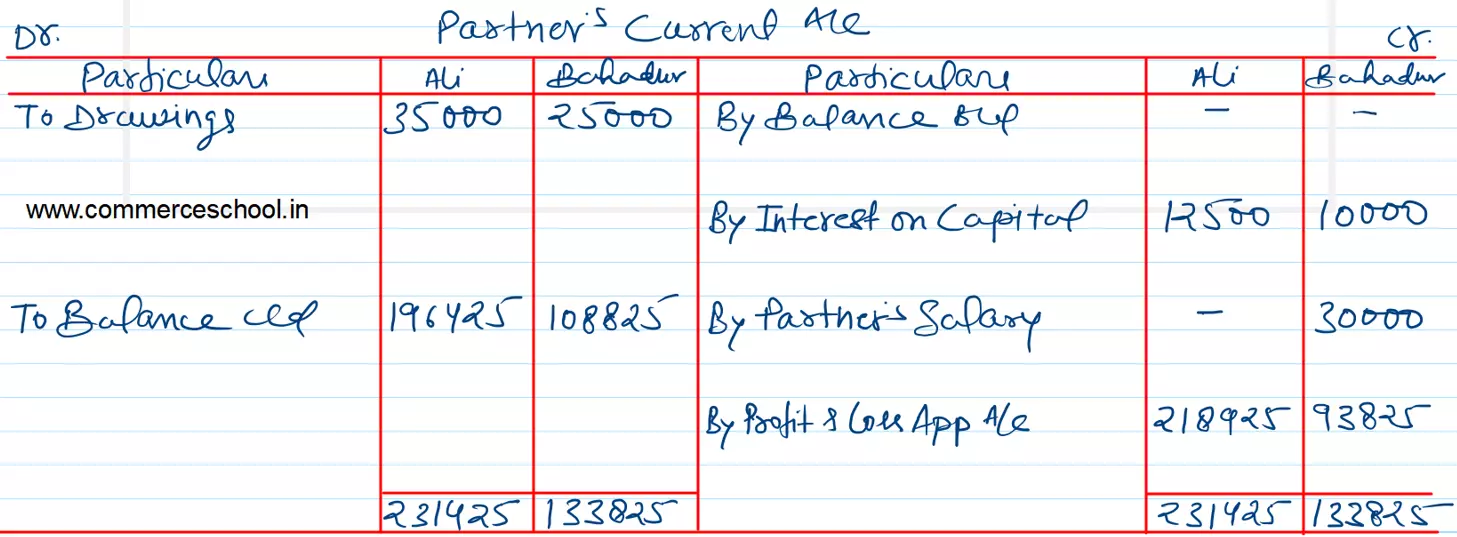 Partner's Current A/c
Dr. Cr.
Particulars Ali Bahadur Particulars Ali Bahadur
To Drawings 35000 25000 By Balance b/d - -
www.commerceschool.in
By Interest on Capital 12500 10000
To Balance c/d 196425 108825 By Partner's Salary - 30000
By Profit & Loss App A/c 218925 93825
231425 133825 231425 133825